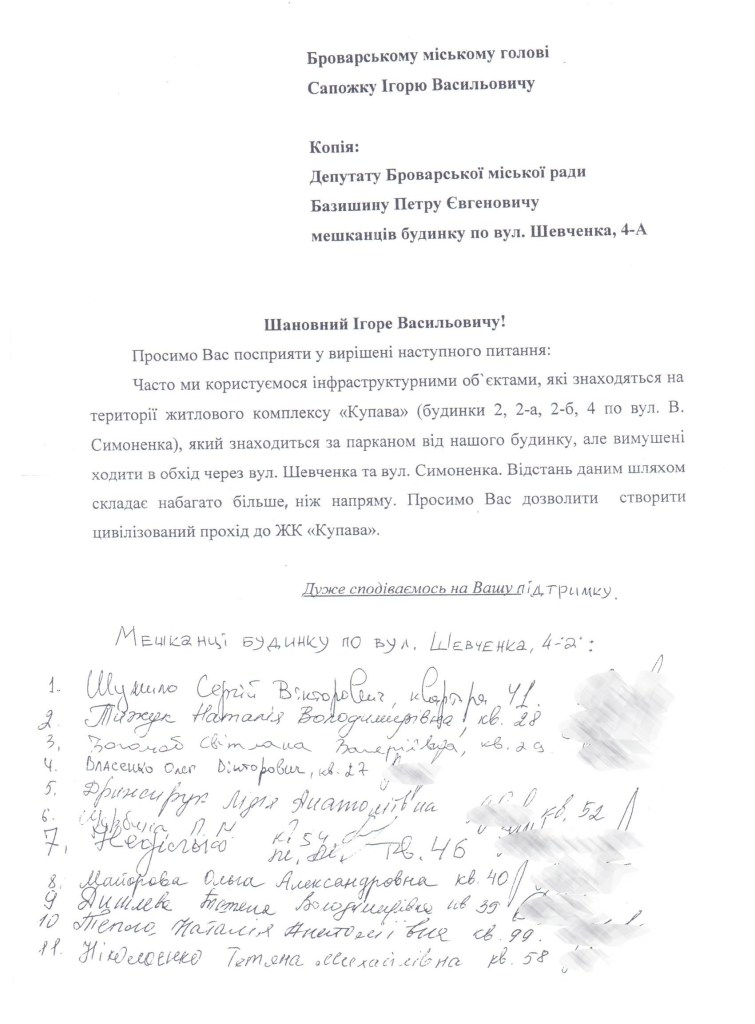 Броварському міському голові
Сапожку Ігорю Васильовичу
Копія:
Депутату Броварської міської ради
Базишину Петру Євгеновичу
мешканців будинку по вул. Шевченка, 4-А
Шановний Ігоре Васильовичу!
Просимо Вас посприяти у вирішені наступного питання:
Часто ми користуємося інфраструктурними об`єктами, які знаходяться на
території житлового комплексу «Купава» (будинки 2, 2-а, 2-б, 4 по вул. В.
Симоненка), який знаходиться за парканом від нашого будинку, але вимушені
ходити в обхід через вул. Шевченка та вул. Симоненка. Відстань даним шляхом
складає набагато більше, ніж напряму. Просимо Вас дозволити створити
цивілізований прохід до ЖК «Купава».
Дуже сподіваємось на Вашу підтримку.
Мешканці будинку по вул. Шевченка, 4-а:
1. Шумило Сергій Вікторович, квартира 41.
2. Наталія Володимирівна, кв. 28
3. Світлана Валеріївна, кв. 29
4. Власенко Олег Вікторович, кв. 27
5. Лідія Анатоліївна кв. 52
6. кв. 54
7. кв. 46
8. Майорова Ольга Александровна кв. 40
9 Володимирівна кв 39
10 Наталія Анатоліївна кв. 99.
11. Ніколаєнко Тетяна Михайлівна кв. 58